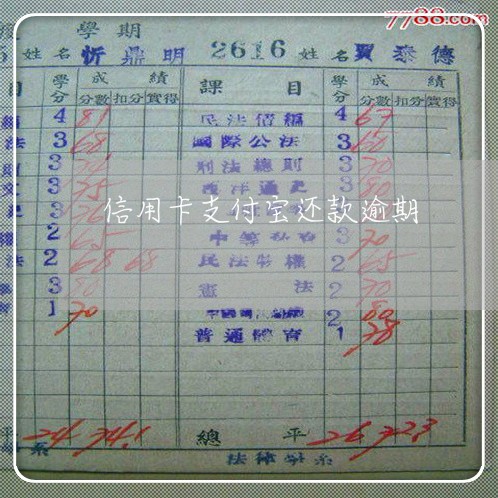 7788.com
學期
姓名 忻鼎明 2616 姓名 賈泰德
目 學分 成績 課目 學分 成績
分數 扣分 實得 分數 扣分 實得
4 81 民法債編 4 67
法 3 68 國際公法 3 60
3 刑法總則 3 70
3 75 西洋通史 3 80
信用卡支付宝还款逾期
2 65 3 70
法 2 68 68 民法物權 2 65
3 80 憲法 2 70
1 70 2 80
普通體育 1 78
平 24 74.1 總平 26 72.3
系 法律學系